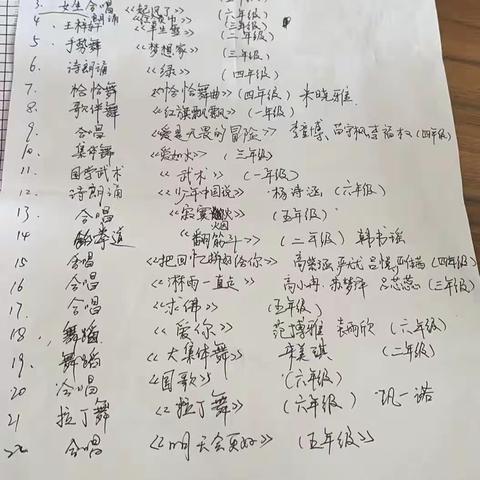 3. 女生合唱 《起风了》 (六年级)
4. 朗诵 (三年级)
5. 手势舞 《梦想家》 (二年级)
6. 诗朗诵 《绿》 (四年级)
7. 恰恰舞 《恰恰舞曲》 (四年级) 米晓雅
8. 歌伴舞 《红旗飘飘》 (一年级)
9. 合唱 《爱是无畏的冒险》 (四年级)
10. 集体舞 《爱如火》 (三年级)
11. 国学武术 《武术》 (一年级)
12. 诗朗诵 《少年中国说》 杨诗涵 (六年级)
13. 合唱 《寂寞烟火》 (五年级)
14 跆拳道 《翻筋斗》 (二年级) 韩书瑶
15 合唱 《把回忆拼好给你》 (四年级)
16 合唱 《淋雨一直走》 高小冉 苏梦泽 吕芯蕊 (三年级)
17. 合唱 《求佛》 (五年级)
18. 舞蹈 《爱你》 范博雅 袁雨欣 (六年级)
19. 舞蹈 《大集体舞》 (二年级)
20 合唱 《国歌》 (六年级)
21 拉丁舞 《拉丁舞》 (六年级) 巩一诺
22 合唱 《明天会更好》 (五年级)